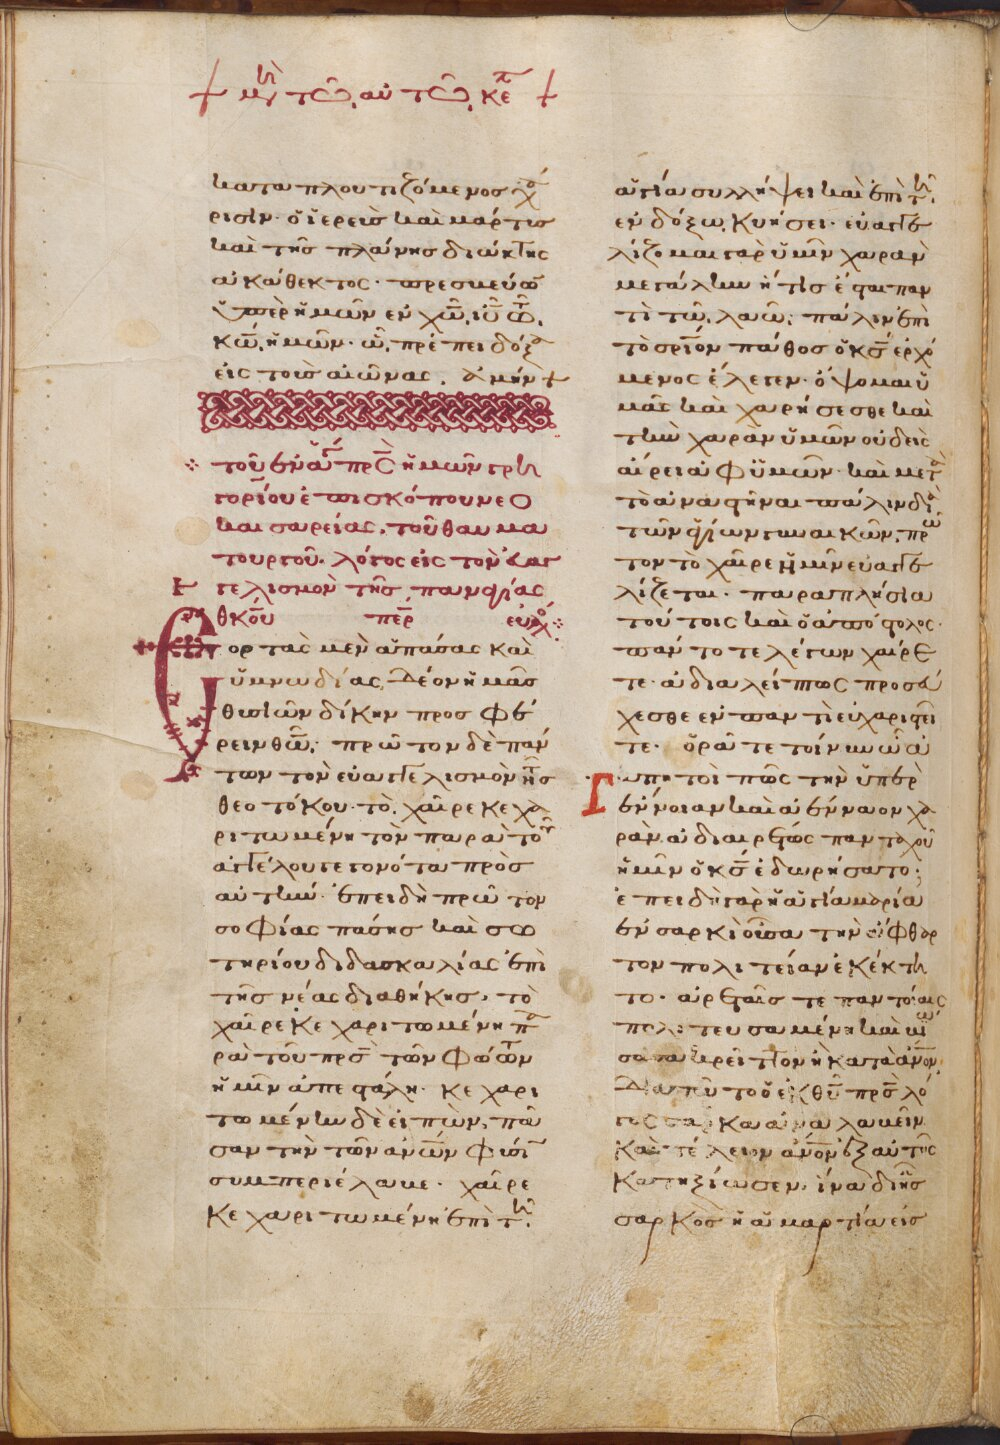 + μη τῶ αὐτῶ κε +
καταπλουτιζόμενος χά
ρισιν· ὁ ἱερεὺς καὶ μάρτυς
καὶ τῆς πλάνης διώκτης
ἀκάθεκτος· πρέσβευε
ὑπὲρ ἡμῶν ἐν χω ιυ τω
κω ἡμῶν· ὧ πρέπει δόξα
εἰς τοὺς αἰῶνας. ἀμήν +
τοῦ ἐν ἁγ πρς ἡμῶν γρη
γορίου ἐπισκόπου νεο
καισαρείας, τοῦ θαυμα
τουργοῦ. λόγος εἰς τὸν εὐαγ
γελισμὸν τῆς παναγίας
θκου
Ἑορτὰς μὲν ἁπάσας καὶ
ὑμνωδίας, δέον ἡμᾶς
θυσιῶν δίκην προσφέ
ρειν θω· πρῶτον δὲ πάν
των τὸν εὐαγγελισμὸν τῆς
θεοτόκου· τὸ, χαῖρε κεχα
ριτωμένη τὸν παρὰ τοῦ
ἀγγέλου γεγονότα πρὸς
αὐτήν· ἐπειδὴ πρῶτον
σοφίας πάσης καὶ σω
τηρίου διδασκαλίας ἐπὶ
τῆς νέας διαθήκης, τὸ
χαῖρε κεχαριτωμένη πα
ρὰ τοῦ πρς τῶν φώτων
ἡμῖν ἀπεστάλη· κεχαρι
τωμένην δὲ εἰπὼν, πᾶ
σαν τὴν τῶν ἀνων φύσιν
συμπεριέλαβε· χαῖρε
κεχαριτωμένη ἐπὶ τη
ἁγία συλλήψει καὶ ἐπὶ τη
ἐνδόξω κυήσει· εὐαγγε
λίζομαι γὰρ ὑμῖν χαρὰν
μεγάλην ἥτις ἔσται παν
τὶ τῶ λαῶ· πάλιν ἐπὶ
τὸ σριον πάθος ὁ κς ἐρχό
μενος ἔλεγεν· ὄψομαι ὑ
μᾶς καὶ χαρήσεσθε καὶ
τὴν χαρὰν ὑμῶν οὐδεὶς
αἴρει ἀφ ὑμῶν· καὶ μετὰ
τὸ ἀναστῆναι πάλιν διὰ
τῶν ἁγίων γυναικῶν, πρω
τον τὸ χαῖρε ἡμῖν εὐαγγε
λίζεται· παραπλήσια
τούτοις καὶ ὁ ἀπόστολος·
πάντοτε λέγων χαίρε
τε· ἀδιαλείπτως προσεύ
χεσθε ἐν παντὶ εὐχαριστεῖ
τε· ὁρᾶτε τοίνυν ὦ ἀ
γαπητοὶ πῶς τὴν ὑπὲρ
ἔννοιαν καὶ ἀένναον χα
ρὰν ἀδιαιρέτως πανταχοῦ
ἡμῖν ὁ κς ἐδωρήσατο·
ἐπειδὴ γὰρ ἡ ἁγία μαρία
ἐν σαρκὶ οὖσα τὴν ἄφθαρ
τον πολιτείαν ἐκέκτη
το· ἀρεταῖς τε παντοίαις
πολιτευσαμένη καὶ
σασα κρεῖττον ἢ κατὰ ἄνον·
Διατοῦτο ὁ ἐκ θυ πρς λό
γος σάρκα ἀναλαβεῖν
καὶ τέλειον ἄνον ἐξ αὐτῆς
κατηξίωσεν, ἵνα δι ἧς
σαρκὸς ἡ ἁμαρτία εἰς